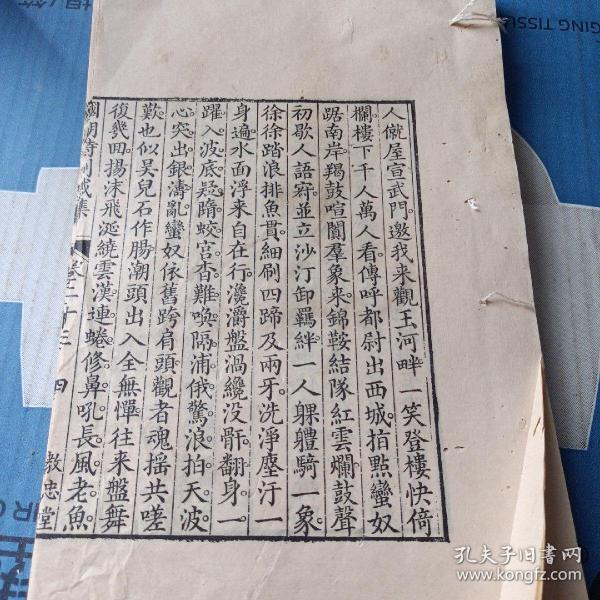 人僦屋宣武門邀我来觀玉河畔一笑登樓快倚
欄樓下千人萬人看傳呼都尉出西城指點蠻奴
踞南岸羯鼓喧闐羣象来錦鞍結隊紅雲爛鼓聲
初歇人語寂並立沙汀卸羈絆一人躶軆騎一象
徐徐踏浪排魚貫細刷四蹄及兩牙洗淨塵汙一
身遍水面浮来自在行瀺灂盤渦纔没骭翻身一
躍入波底疑隋蛟宫杳難喚隔浦俄驚浪拍天波
心突出銀濤亂蠻奴依舊跨肩頭觀者魂揺共嗟
歎也似吴兒石作腸潮頭出入全無憚往来盤舞
復幾囬揚沫飛涎繞雲漢連蜷修鼻吼長風老魚
國朝詩別裁集 卷二十三 四 教忠堂
孔夫子旧書网
www.kongfz.com
GING TISSU